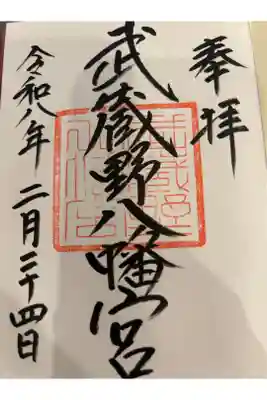 奉拝
武蔵野八幡宮
令和八年 二月二十四日